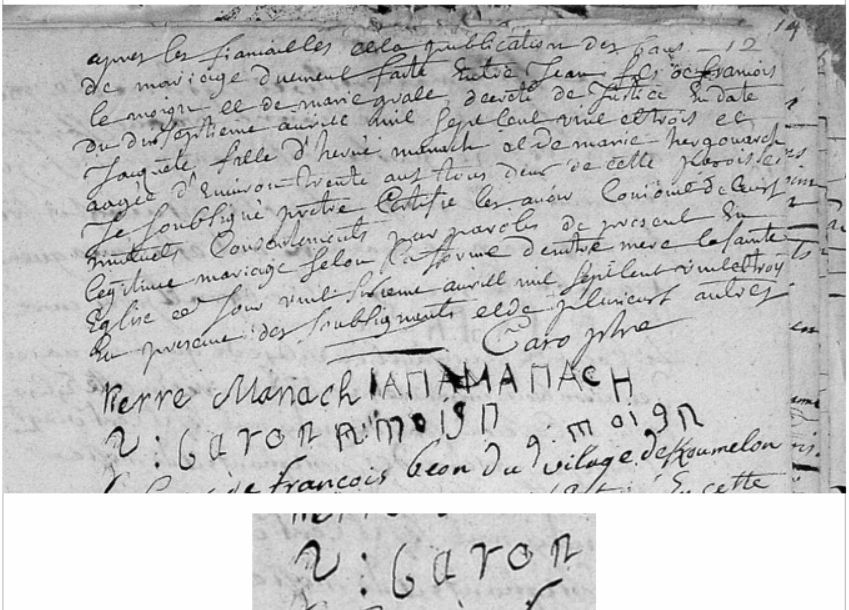 14
apres les fiansailles et la publication des bans - 12
de mariage duement faite Entre Jean fils de francois
le moign et de marie decreté de Justice En date
du dixseptieme avrill mil sept cent vint et trois et
Jacquete fille d'hervé manach et de marie hergouarch
aagée d'Environ trente ans tous deux de cette paroisse
Je soubsigné pretre Certifie les avoir Conjoint de leurs
mutuels Consentements par parolles de present En
legitime mariage selon la forme d'entre mere la sainte
Eglise ce Jour vint sixieme avrill mil sept cent vint et troy
En presence des soubsignants et de plusieurs autres
Caro ptre
Pierre Manach IAПAMAПACH
r : Caron A:moign g: moign
de francois beon Du vilage de Koumelon
En cette
r : Caron